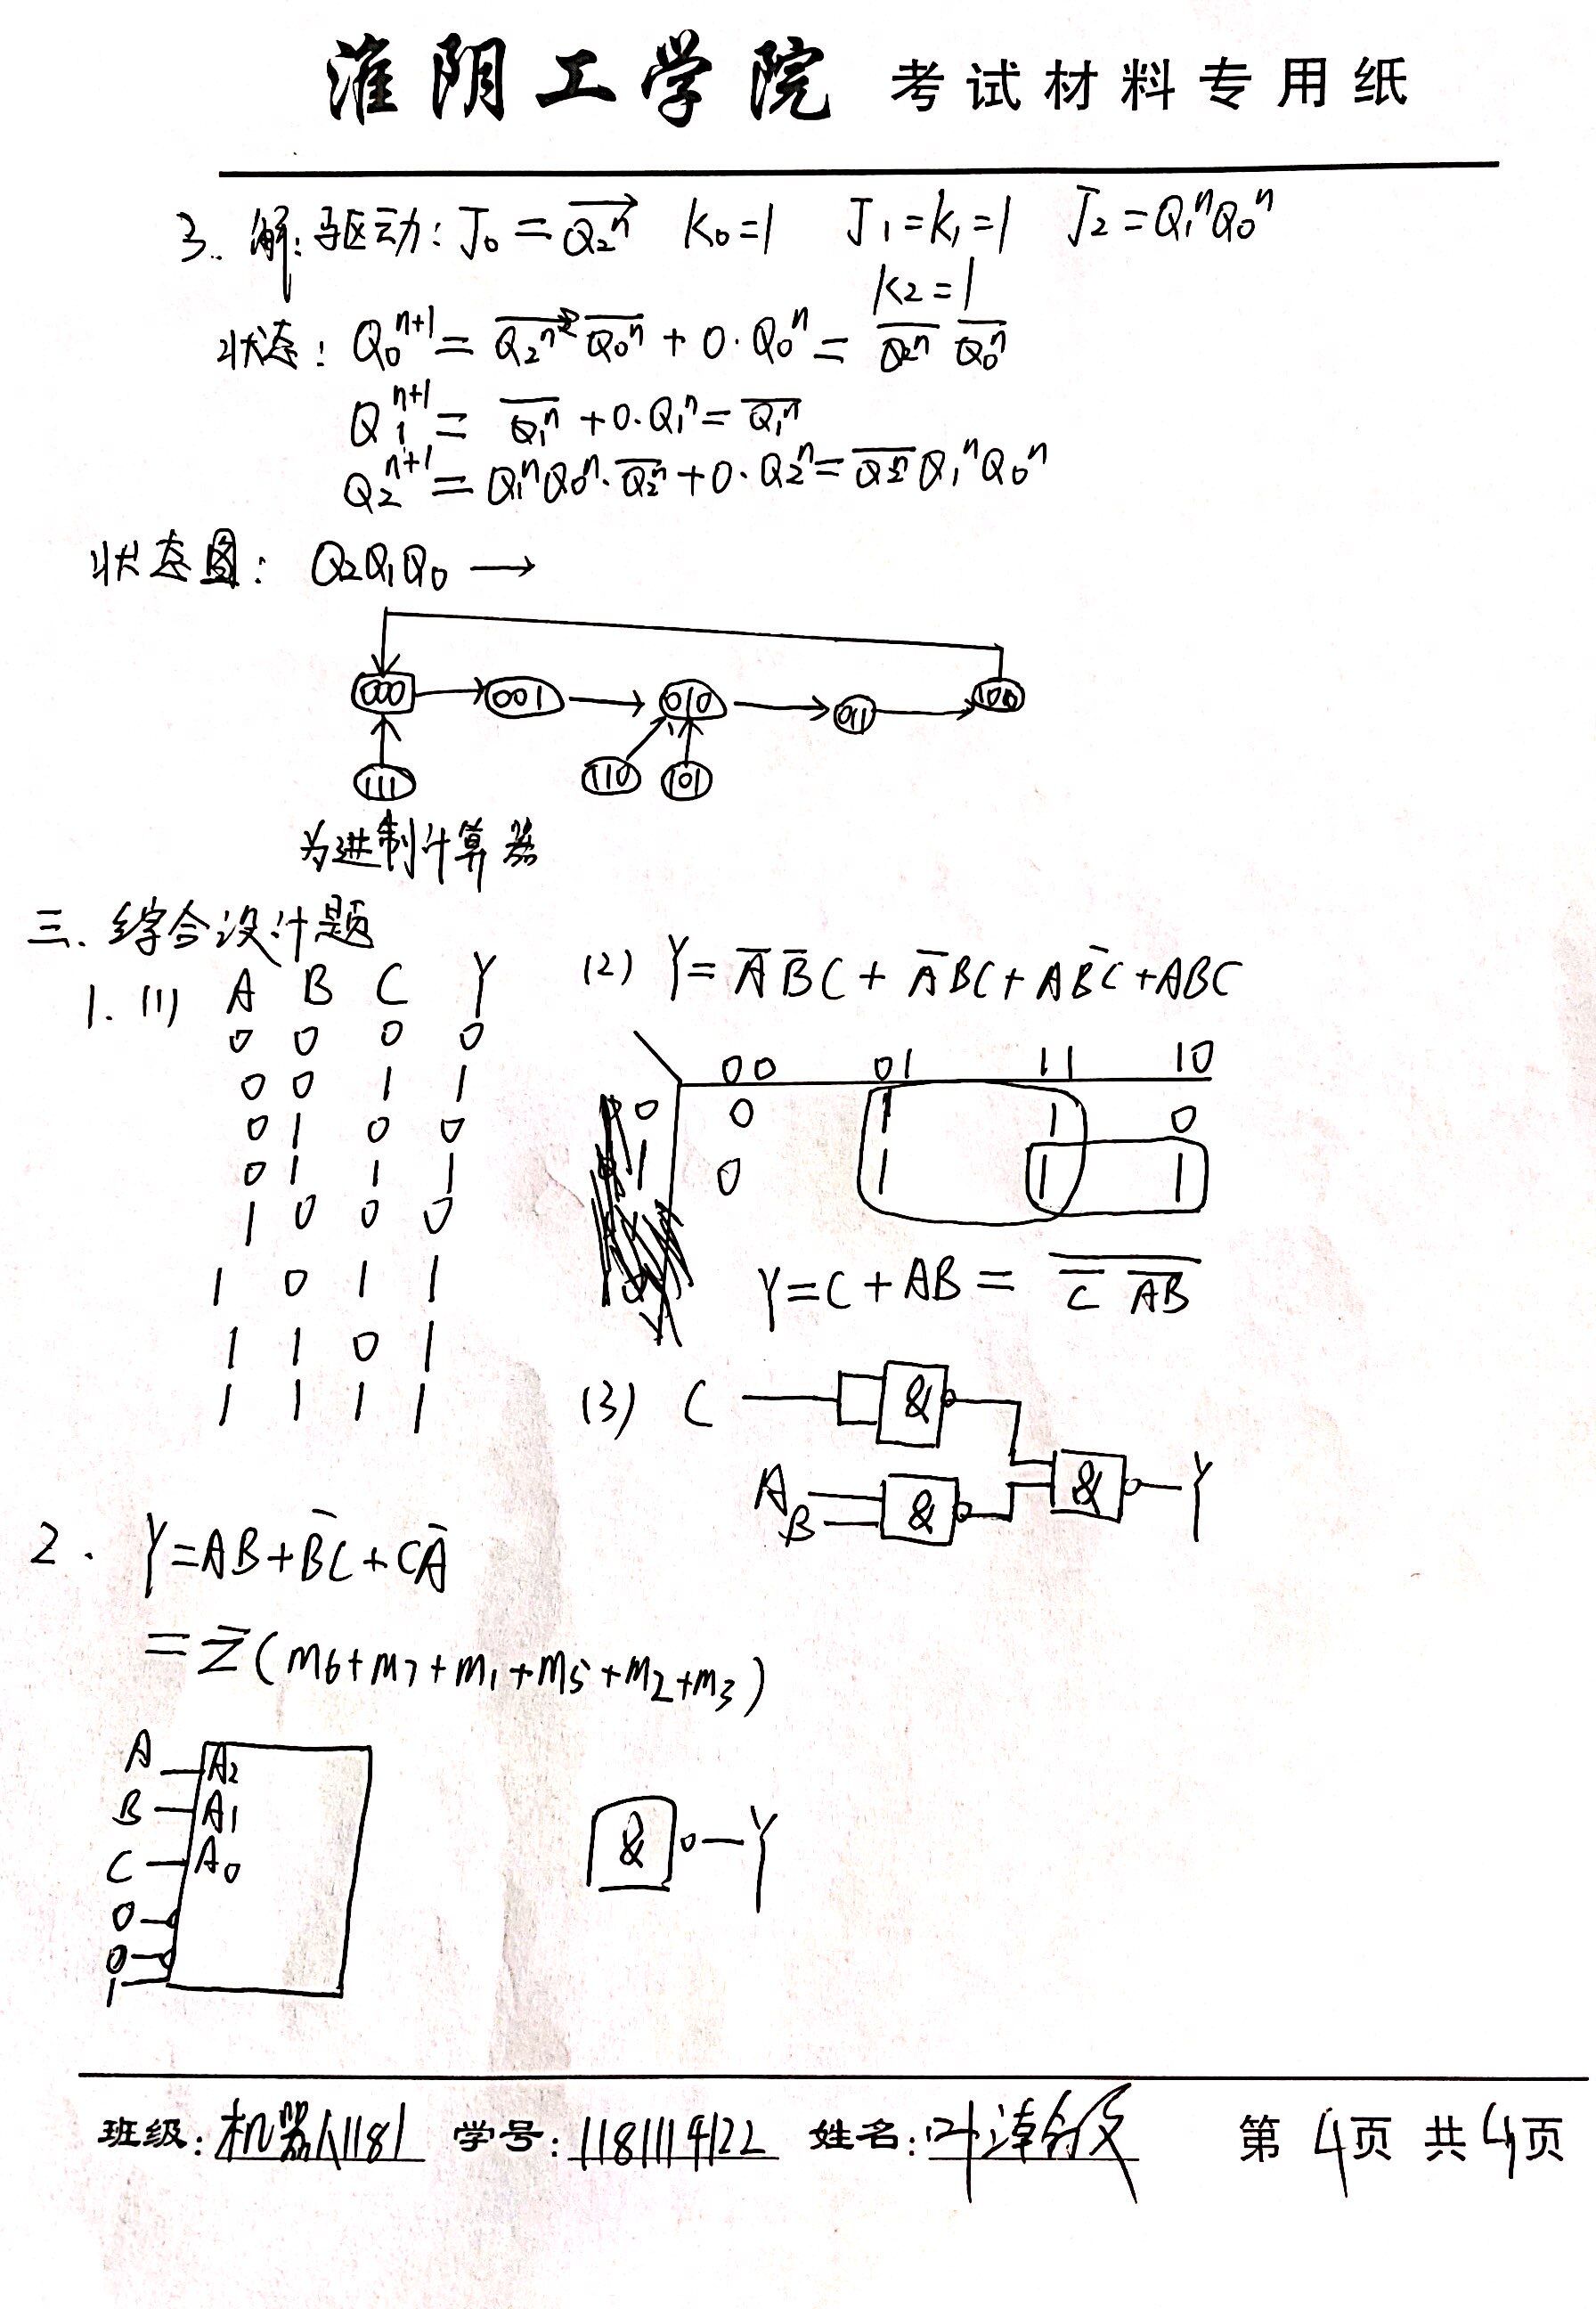 淮阴工学院 考试材料专用纸
3. 解: 驱动: J₀ = Q̅₂ⁿ K₀=1 J₁=K₁=1 J₂=Q₁ⁿQ₀ⁿ
K₂=1
状态: Q₀ⁿ⁺¹ = Q̅₂ⁿ Q̅₀ⁿ + 0·Q₀ⁿ = Q̅₂ⁿ Q̅₀ⁿ
Q₁ⁿ⁺¹ = Q̅₁ⁿ + 0·Q₁ⁿ = Q̅₁ⁿ
Q₂ⁿ⁺¹ = Q₁ⁿQ₀ⁿ·Q̅₂ⁿ + 0·Q₂ⁿ = Q̅₂ⁿQ₁ⁿQ₀ⁿ
状态图: Q₂Q₁Q₀ →
000 → 001 → 010 → 011 → 100
111 110 101
为进制计算器
三. 综合设计题
1. (1) A B C Y
0 0 0 0
0 0 1 1
0 1 0 0
0 1 1 1
1 0 0 0
1 0 1 1
1 1 0 1
1 1 1 1
(2) Y = A̅ B̅ C + A̅ BC + ABC̅ + ABC
00 01 11 10
0 0 1 1 0
1 0 1 1 1
Y = C + AB = \overline{\overline{C} \overline{AB}}
(3) C & 
A B & & Y
2. Y = AB + B̅C + CA̅
= Σ(m₆+m₇+m₁+m₅+m₂+m₃)
A A₂
B A₁
C A₀
0
0
1
& Y
班级: 机器人1181 学号: 1181114122 姓名: 叶 第 4 页 共 4 页